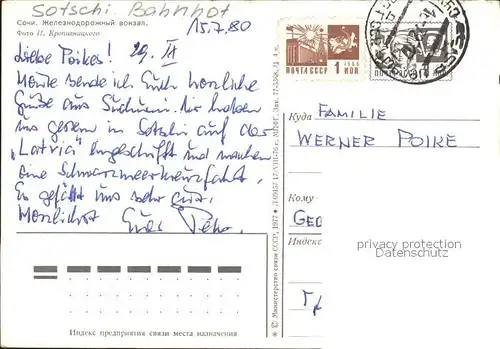 Sotschi Bahnhof
15.7.80
Сочи. Железнодорожный вокзал.
Фото П. Кропивницкого
Liebe Poikes!
Heute sende ich Euch herzliche
Grüße aus Suchumi. Wir haben
uns gestern in Sotschi auf der
"Latvia" eingeschifft und machen
eine Schwarzmeerkreuzfahrt.
Es gefällt uns sehr gut.
Herzlichst Euer
ПОЧТА СССР
1966
1 КОП
Куда FAMILIE
WERNER POIKE
Кому
GEO
Индекс
privacy protection
Datenschutz
© Министерство связи СССР, 1977
Индекс предприятия связи места назначения